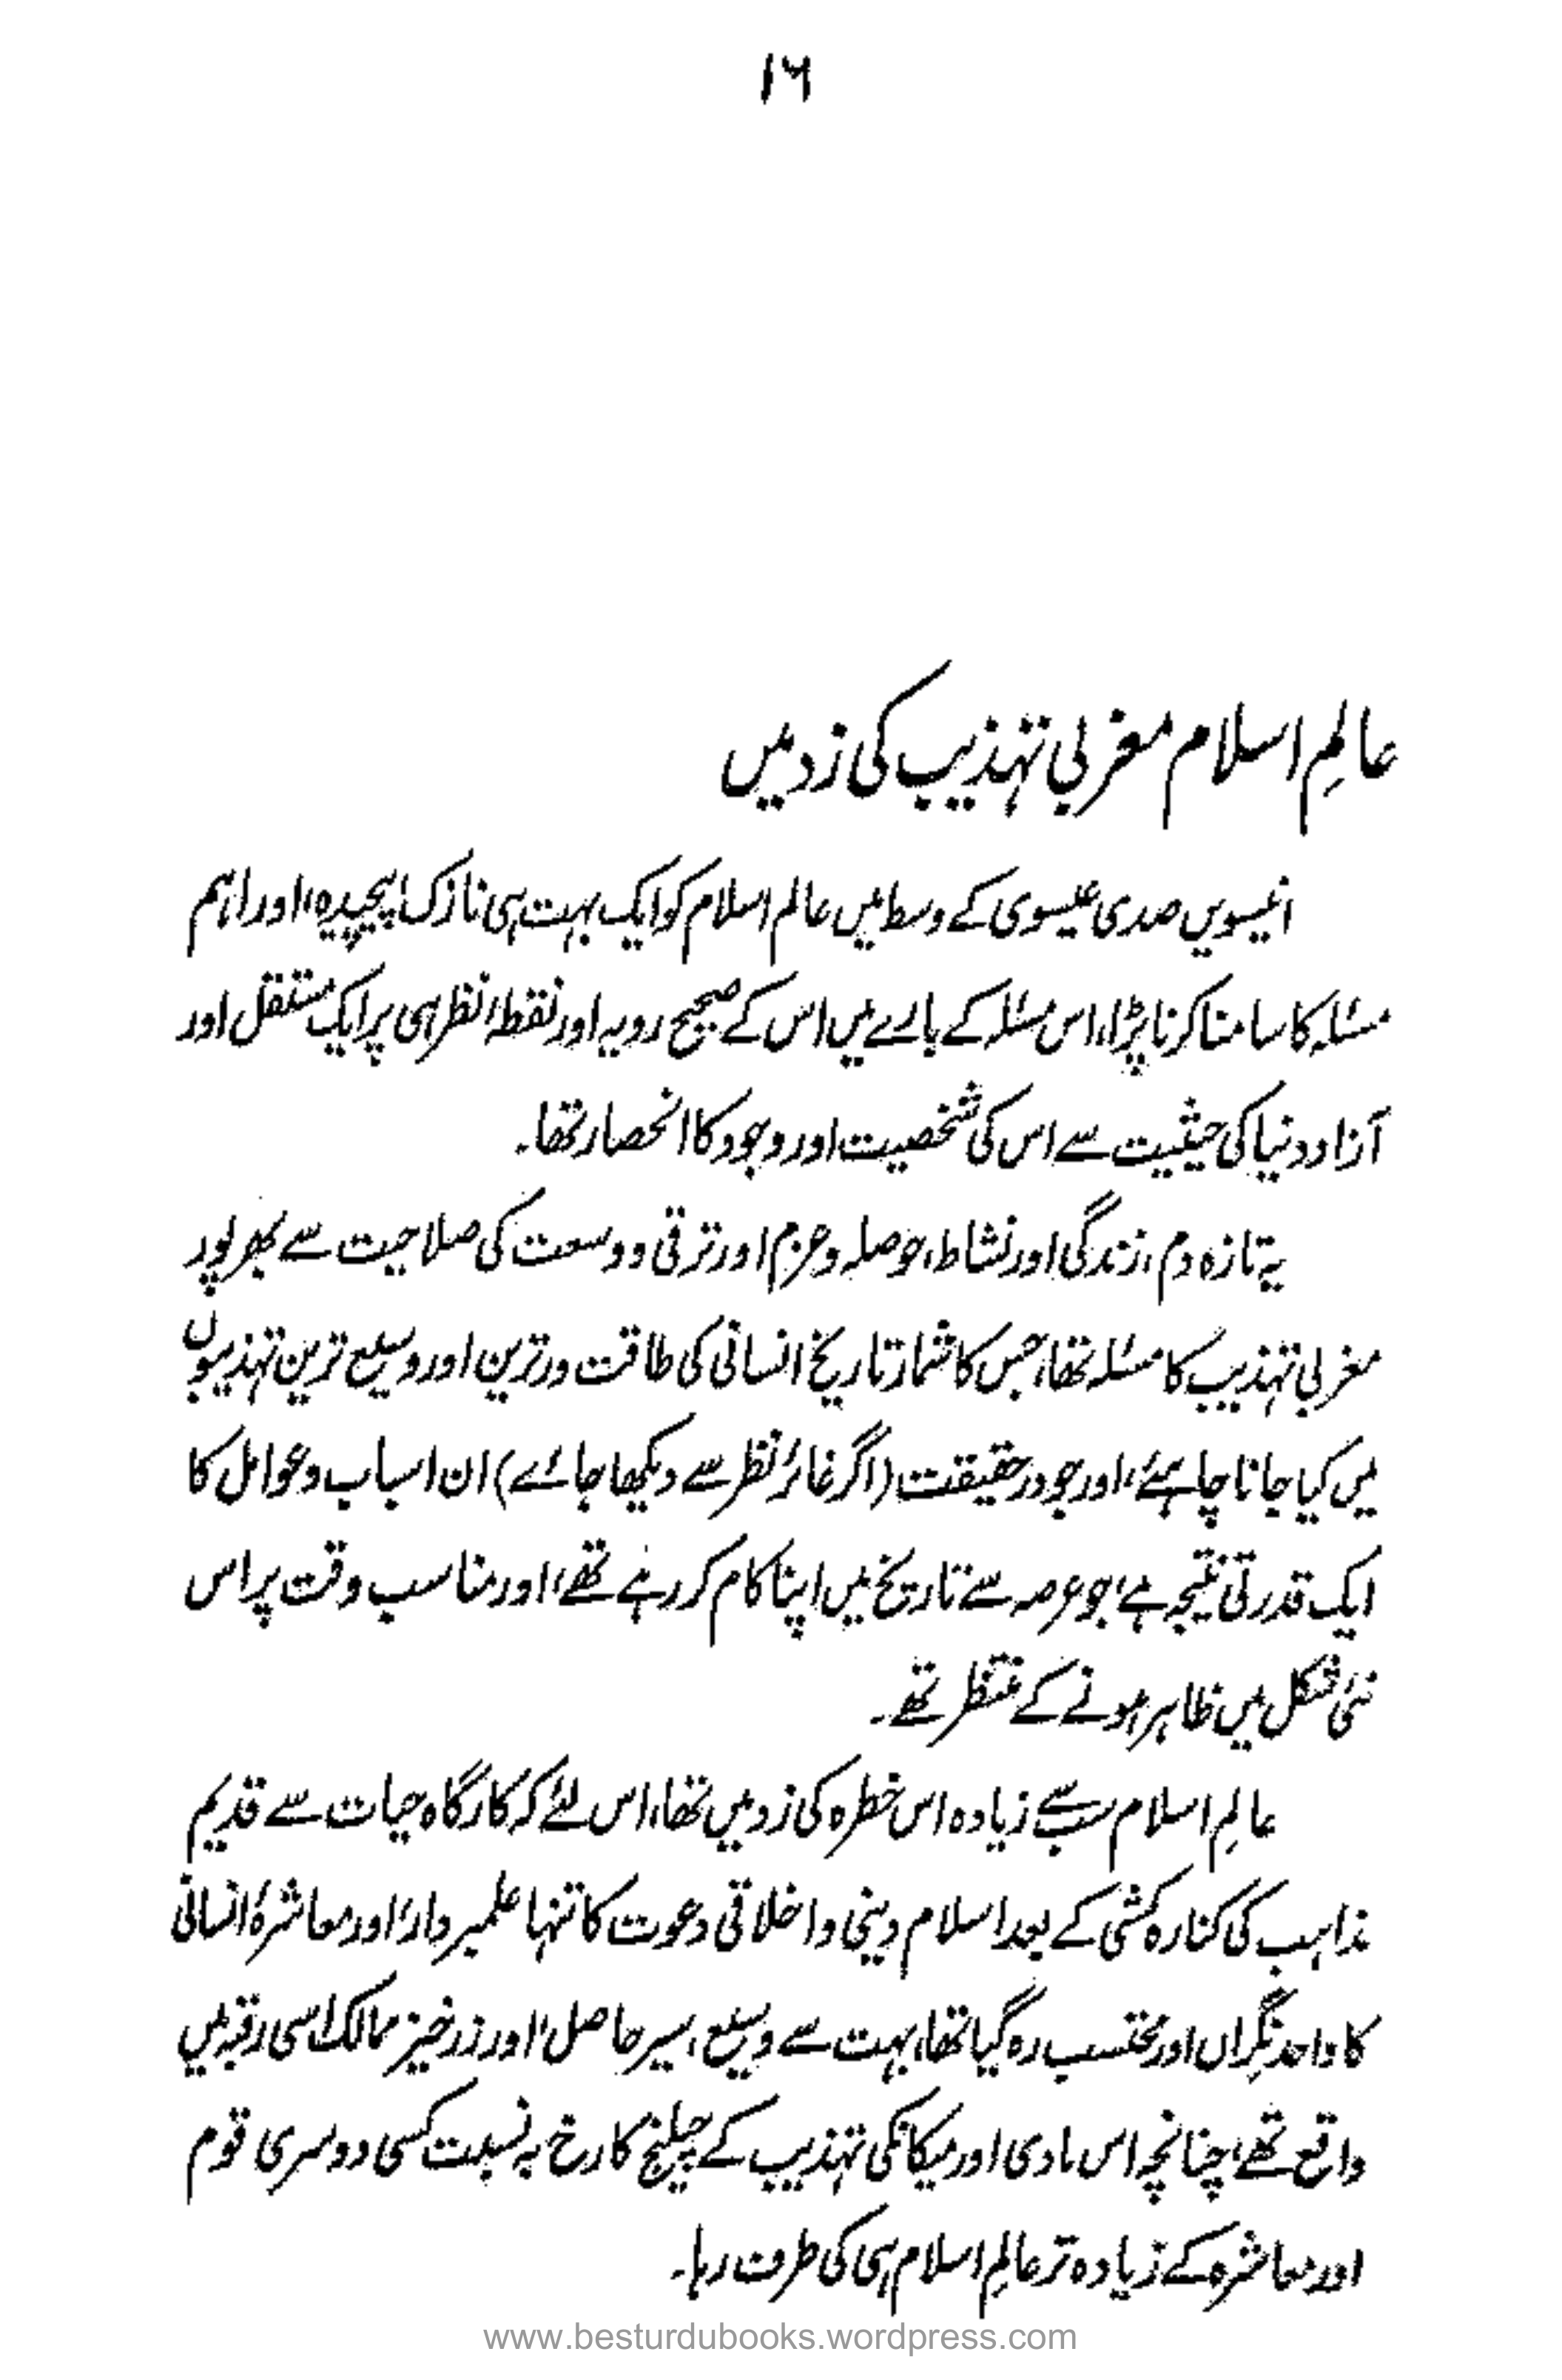 ۱۶
عالمِ اسلام مغربی تہذیب کی زد میں
انیسویں صدی عیسوی کے وسط میں عالم اسلام کو ایک بہت ہی نازک، پیچیدہ، اور اہم
مسئلہ کا سامنا کرنا پڑا، اس مسئلہ کے بارے میں اس کے صحیح رویہ اور نقطۂ نظر ہی پر ایک مستقل اور
آزاد دنیا کی حیثیت سے اس کی شخصیت اور وجود کا انحصار تھا۔
یہ تازہ دم، زندگی اور نشاط، حوصلہ و عزم اور ترقی و وسعت کی صلاحیت سے بھر پور
مغربی تہذیب کا مسئلہ تھا، جس کا شمار تاریخ انسانی کی طاقت ور ترین اور وسیع ترین تہذیبوں
میں کیا جانا چاہئے، اور جو درحقیقت (اگر غائر نظر سے دیکھا جائے) ان اسباب و عوامل کا
ایک قدرتی نتیجہ ہے، جو عرصہ سے تاریخ میں اپنا کام کر رہے تھے، اور مناسب وقت پر اس
نئی شکل میں ظاہر ہونے کے منتظر تھے۔
عالمِ اسلام سب سے زیادہ اس خطرہ کی زد میں تھا، اس لئے کہ کارگاہ حیات سے قدیم
مذاہب کی کنارہ کشی کے بعد اسلام دینی و اخلاقی دعوت کا تنہا علمبردار، اور معاشرۂ انسانی
کا واحد نگراں اور محتسب رہ گیا تھا، بہت سے وسیع، سیر حاصل، اور زرخیز ممالک اسی رقبہ میں
واقع تھے، چنانچہ اس مادی اور میکانکی تہذیب کے چیلنج کا رخ بہ نسبت کسی دوسری قوم
اور معاشرہ کے زیادہ تر عالمِ اسلام ہی کی طرف رہا۔
www.besturdubooks.wordpress.com